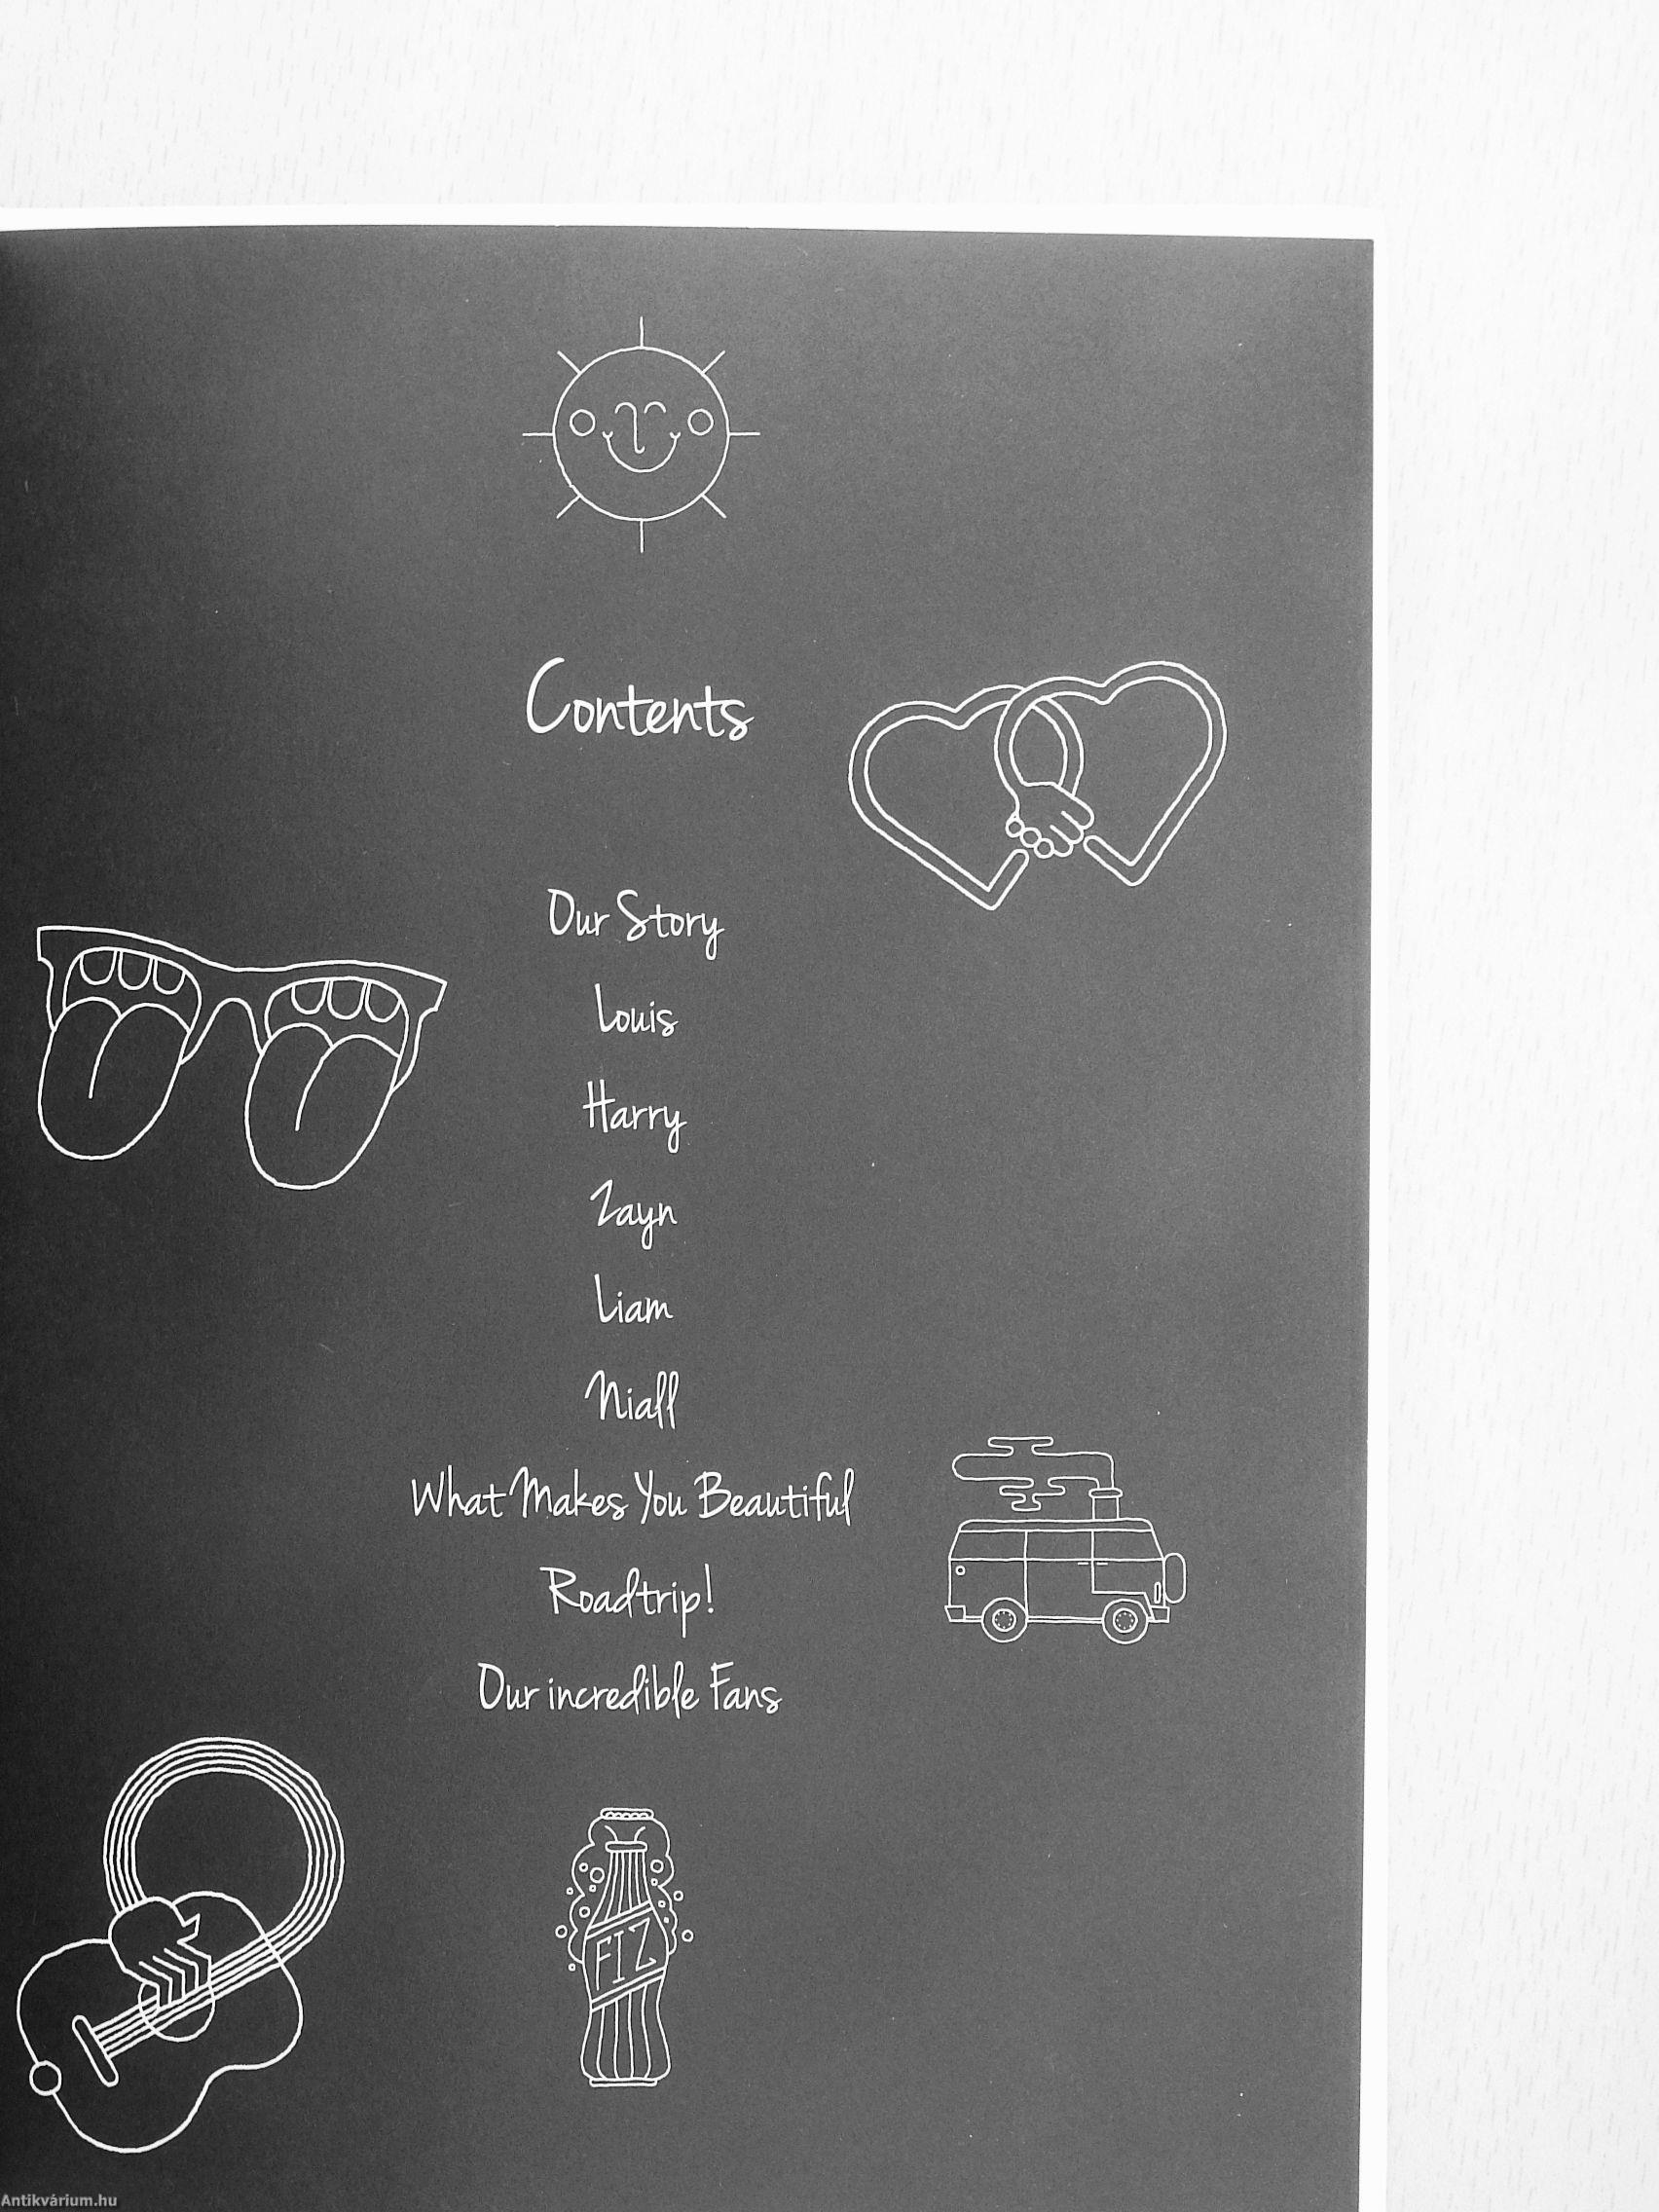 Contents
Our Story
Louis
Harry
Zayn
Liam
Niall
What Makes You Beautiful
Roadtrip!
Our incredible Fans
FIZ
Antikvárium.hu